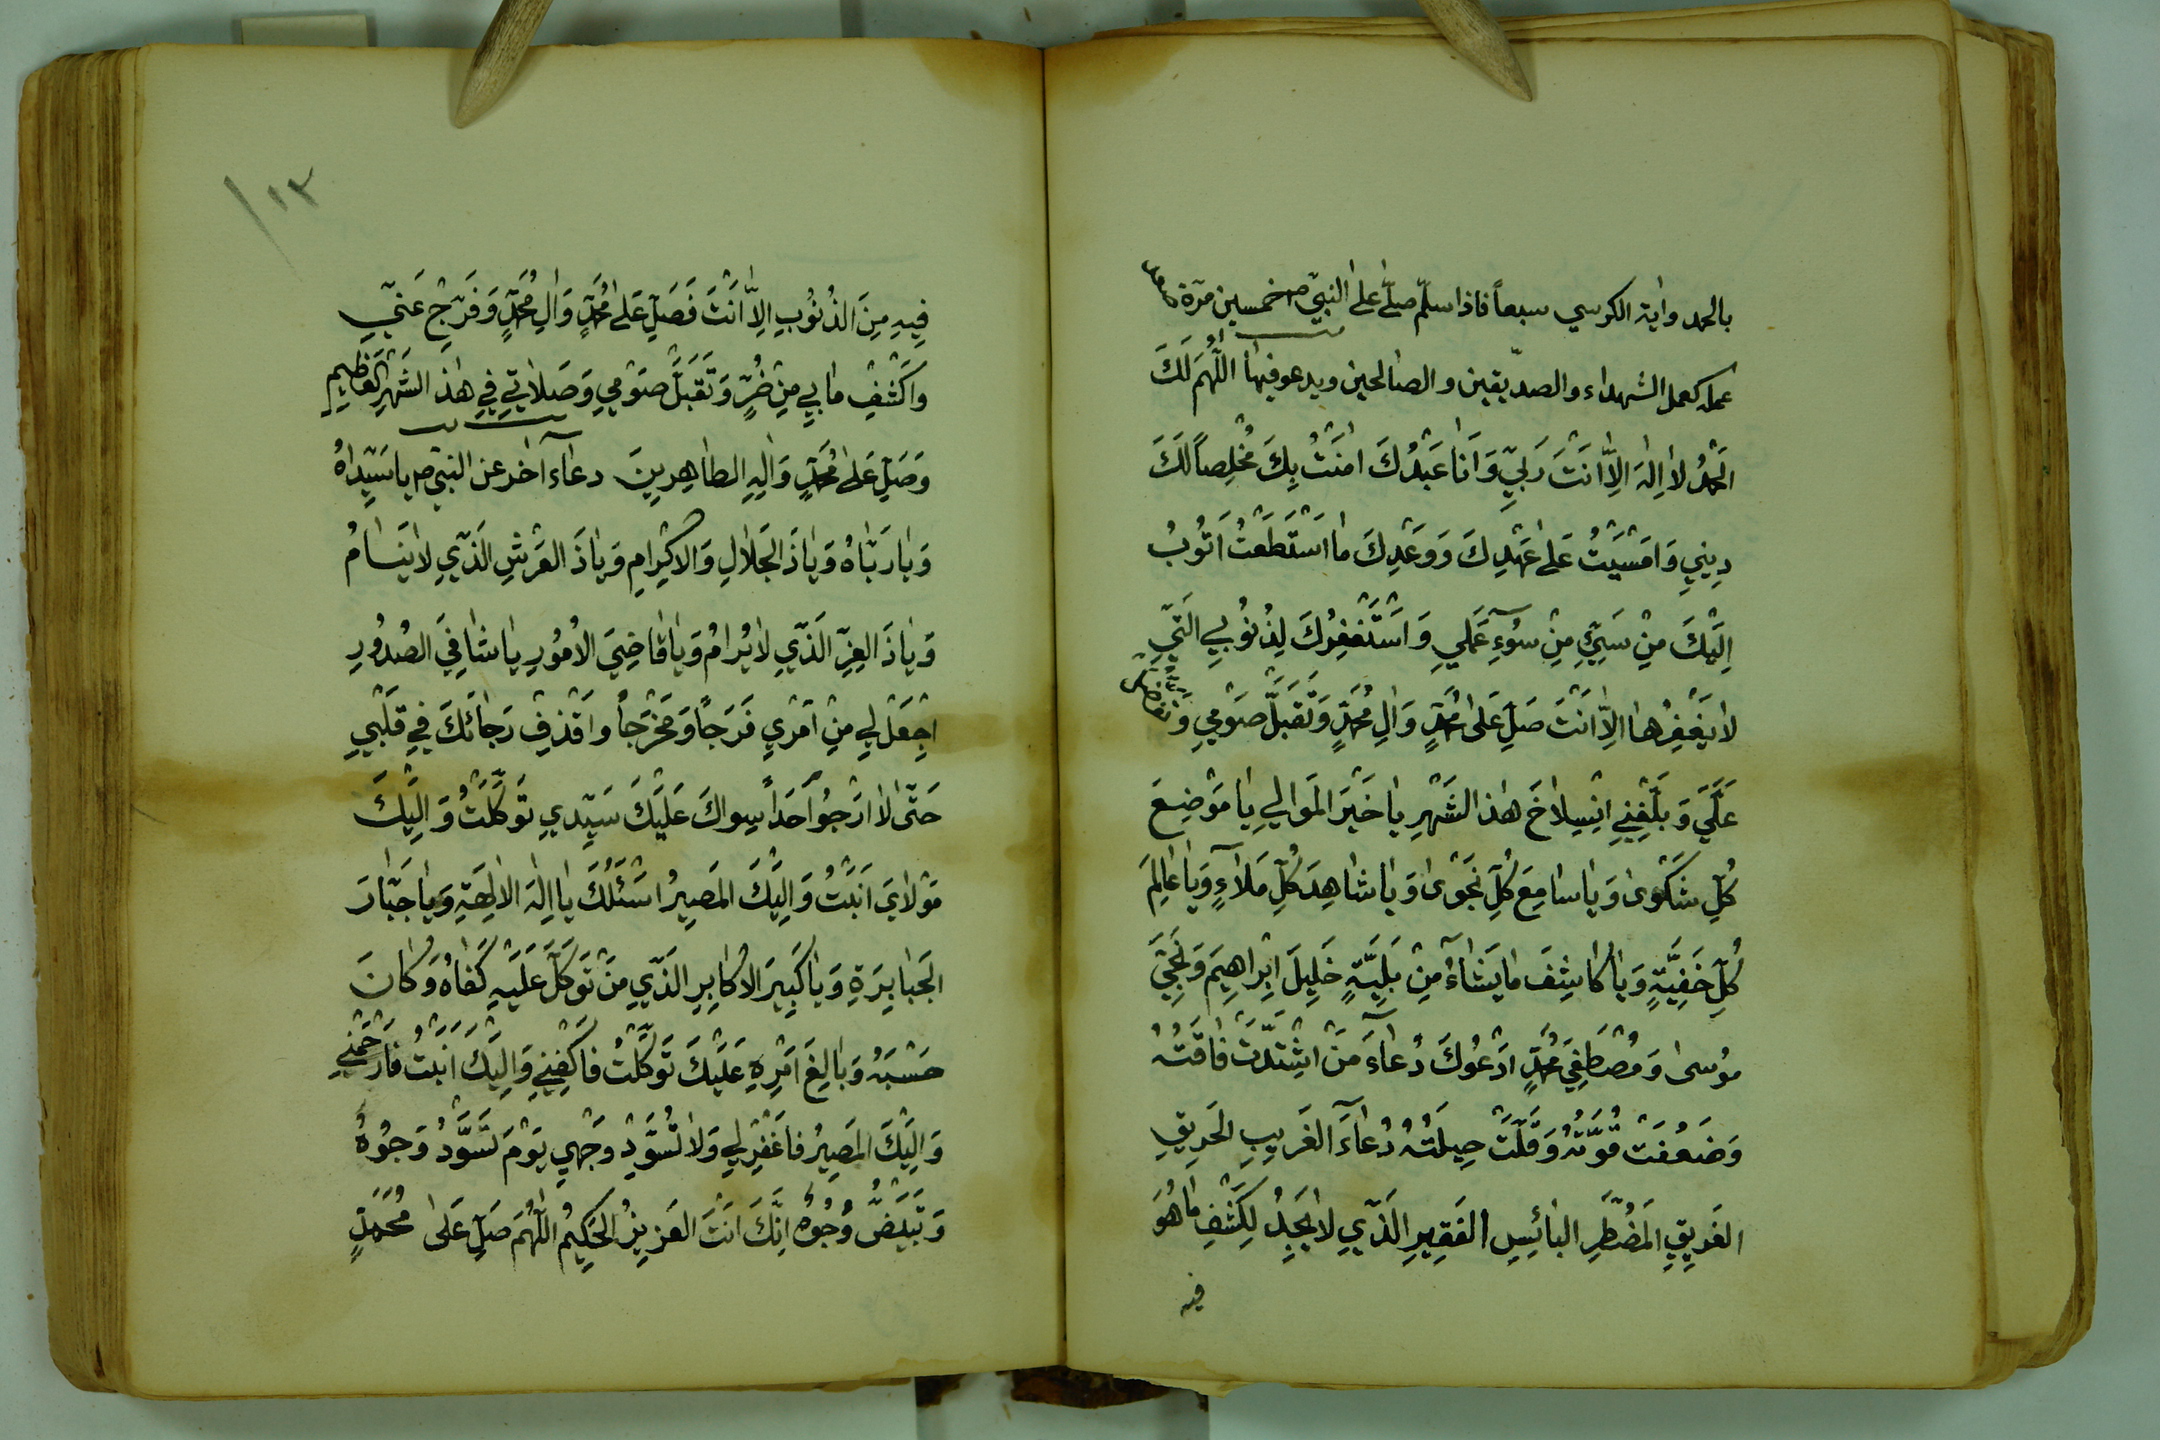 بالحمد واية الكرسي سبعاً فاذا سلّم صلّى على النبيّ ص خمسين مرّة
عمله كعمل الشهداء والصدّيقين والصالحين ويدعو فيها اَللّٰهُمَّ لَكَ
الْحَمْدُ لاٰ اِلٰهَ اِلاّٰ اَنْتَ رَبّيِ وَاَنَا عَبْدُكَ اٰمَنْتُ بِكَ مُخْلِصاً لَكَ
دِيني وَاَمْسَيْتُ عَلىٰ عَهْدِكَ وَوَعْدِكَ مَا اسْتَطَعْتُ اَتُوبُ
اِلَيْكَ مِنْ سَيِّئِ مِنْ سُوۤءِ عَمَلِي وَاَسْتَغْفِرُكَ لِذُنُوبِي الَّتيِ
لاٰ يَغْفِرُهٰا اِلاّٰ اَنْتَ صَلِّ عَلىٰ مُحَمَّدٍ وَاٰلِ مُحَمَّدٍ وَتَقَبَّلْ صَوْمي وَتَفَضَّلْ
عَلَيَّ وَبَلِّغْنِي انْسِلاٰخَ هٰذَا الشَّهْرِ يٰا خَيْرَ الْمَوٰالِي يٰا مَوْضِعَ
كُلِّ شَكْوىٰ وَيٰا سٰامِعَ كُلِّ نَجْوىٰ وَيٰا شٰاهِدَ كُلِّ مَلَاءٍ وَيٰا عٰالِمَ
كُلِّ خَفِيَّةٍ وَيٰا كٰاشِفَ مٰا يَشٰاۤءُ مِنْ بَلِيَّةٍ خَلِيلَ اِبْرٰاهِيمَ وَنَجِيَّ
مُوسىٰ وَمُصْطَفِيَ مُحَمَّدٍ اَدْعُوكَ دُعٰاۤءَ مَنْ اشْتَدَّتْ فٰاقَتُهُ
وَضَعُفَتْ قُوَّتُهُ وَقَلَّتْ حِيلَتُهُ دُعٰاۤءَ الْغَرِيبِ الْحَرِيقِ
الْغَرِيقِ الْمُضْطَرِّ الْبٰائِسِ الْفَقِيرِ الَّذِّي لاٰ يَجِدُ لِكَشْفِ مٰا هُوَ
فيه
١٣
فِيهِ مِنَ الذُنُوبِ اِلاّٰ اَنْتَ فَصَلِّ عَلىٰ مُحَمَّدٍ وَاٰلِ مُحَمَّدٍ وَفَرِّجْ عَنّيِ
وَاكْشِفْ مٰا بِي مِنْ ضُرٍّ وَتَقَبَّلْ صَوْمي وَصَلاٰتيِ فِي هٰذَا الشَهْرِ الْعَظِيمِ
وَصَلِّ عَلىٰ مُحَمَّدٍ وَاٰلِهِ الطٰاهِرِينَ دعاۤء آخر عن النبيّ ص يا سَيِّدٰاهُ
وَيٰا رَبّٰاهُ وَيٰا ذَا الْجَلاٰلِ وَالْاِكْرٰامِ وَيٰا ذَا الْعَرْشِ الَّذِّي لاٰ يَنٰامُ
وَيٰا ذَا الْعِزِّ الَّذِّي لاٰ يُرٰامُ وَيٰا قٰاضِيَ الْاُمُورِ يٰا شٰافِيَ الصُدُورِ
اجْعَلْ لِي مِنْ اَمْرِي فَرَجاً وَمَخْرَجاً وَاقْذِفْ رَجٰائَكَ فِي قَلْبِي
حَتّىٰ لاٰ اَرْجُوَ اَحَداً سِوٰاكَ عَلَيْكَ سَيِّدِي تَوَكَّلْتُ وَاِلَيْكَ
مَوْلاٰيَ اَنَبْتُ وَاِلَيْكَ الْمَصِيرُ اَسْئَلُكَ يٰا اِلٰهَ الْاٰلِهَةِ وَيٰا جَبّٰارَ
الْجَبٰابِرَةِ وَيٰا كَبِيرَ الْاَكٰابِرِ الَّذِّي مَنْ تَوَكَّلَ عَلَيْهِ كَفٰاهُ وَكٰانَ
حَسْبَهُ وَبٰالِغَ اَمْرِهِ عَلَيْكَ تَوَكَّلْتُ فَاكْفِنيِ وَاِلَيْكَ اَنَبْتُ فَارْحَمْنيِ
وَاِلَيْكَ الْمَصِيرُ فَاغْفِرْ لِي وَلاٰ تُسَوِّدْ وَجْهِي يَوْمَ تَسْوَدُّ وُجُوهٌ
وَتَبْيَضُّ وُجُوهٌ اِنَّكَ اَنْتَ الْعَزِيزُ الْحَكِيمُ اَللّٰهُمَّ صَلِّ عَلىٰ مُحَمَّدٍ